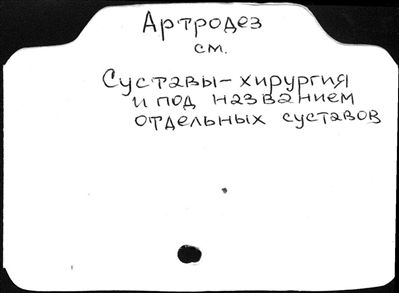 Артродез
см.
Суставы - хирургия
и под названием
отдельных суставов